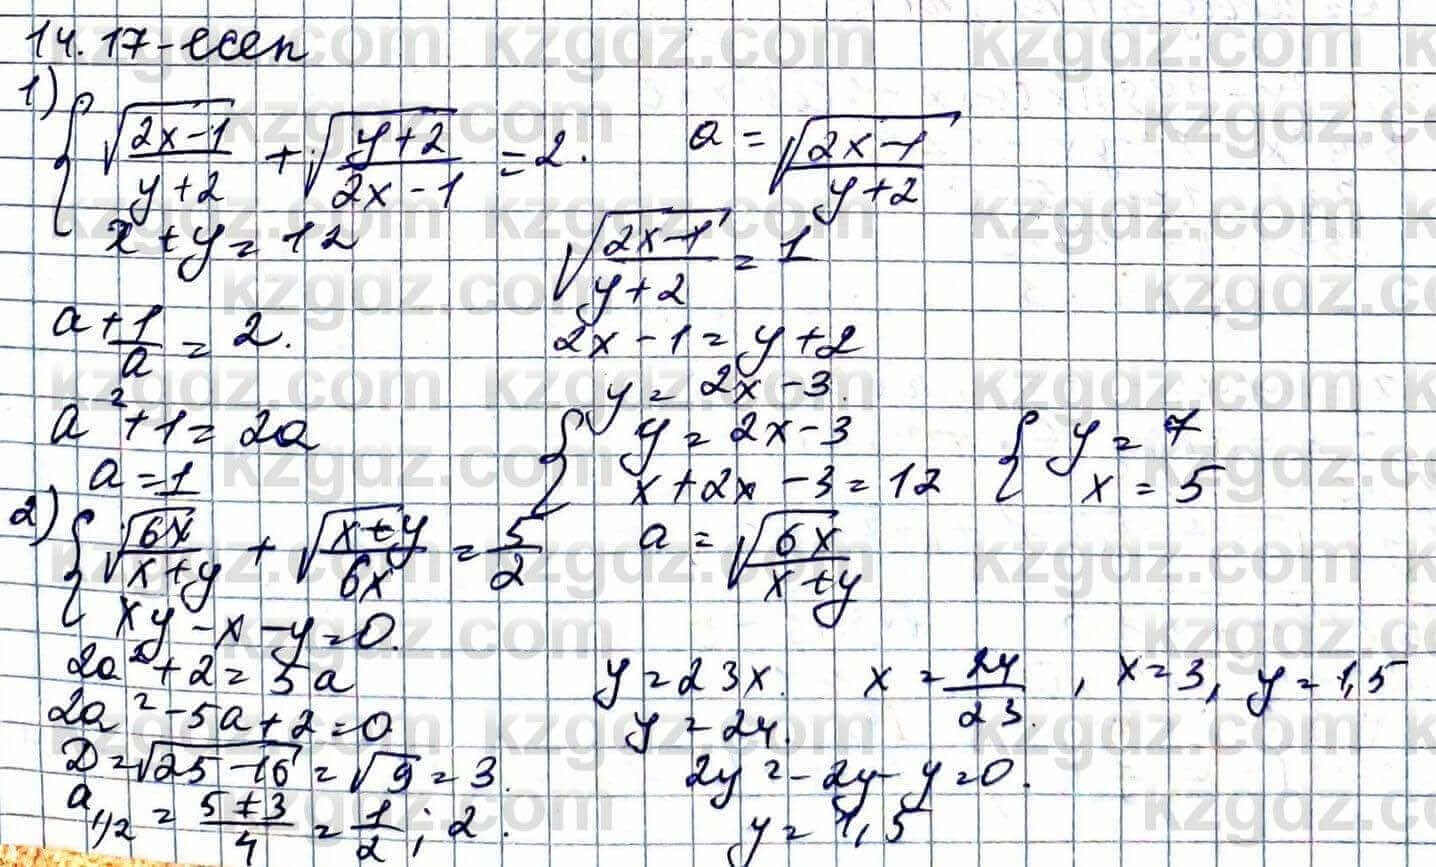 14.17-есеп
1) { √((2x-1)/(y+2)) + √((y+2)/(2x-1)) = 2.
x + y = 12
a + 1/a = 2.
a² + 1 = 2a
a = 1
a = √((2x-1)/(y+2))
√((2x-1)/(y+2)) = 1
2x - 1 = y + 2
y = 2x - 3.
{ y = 2x - 3
x + 2x - 3 = 12
{ y = 7
x = 5
2) { √(6x/(x+y)) + √((x+y)/6x) = 5/2
xy - x - y = 0.
a = √(6x/(x+y))
2a² + 2 = 5a
2a² - 5a + 2 = 0
D = √(25-16) = √9 = 3.
a₁,₂ = (5±3)/4 = 1/2; 2.
y = 23x. x = 24/23, x = 3, y = 1,5
y = 24.
2y² - 2y - y = 0.
y = 1,5
kzgdz.com